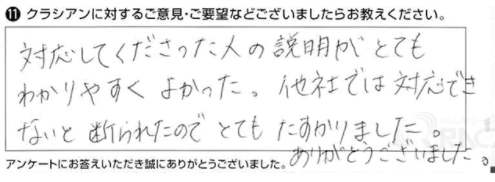 ⓫ クラシアンに対するご意見・ご要望などございましたらお教えください。
対応してくださった人の説明がとても
わかりやすく よかった。他社では対応でき
ないと断られたので とても たすかりました。
ありがとうございました。
アンケートにお答えいただき誠にありがとうございました。